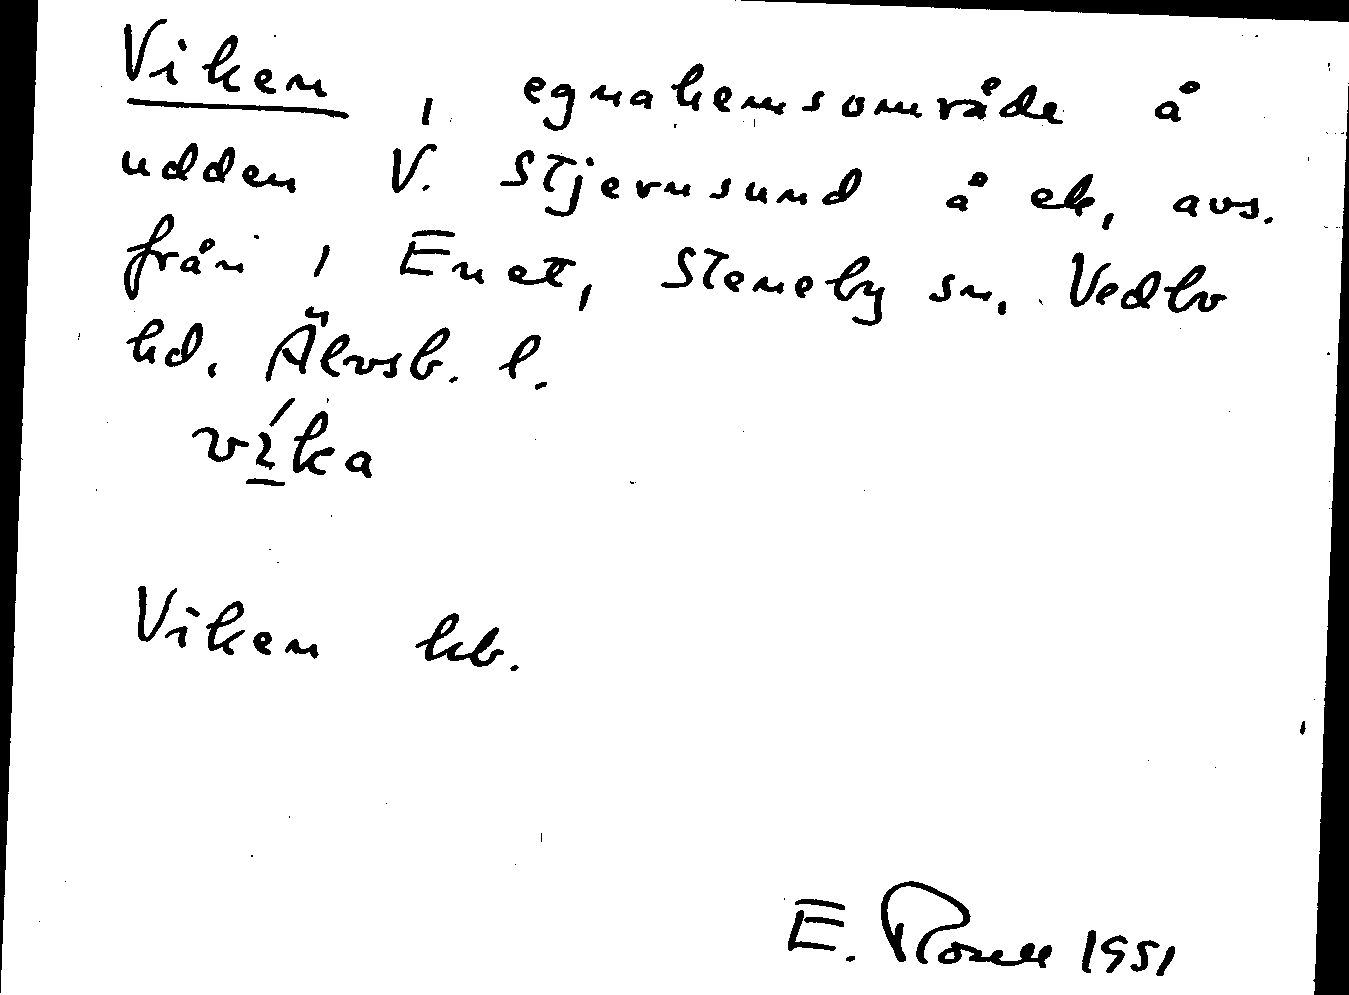 Viken, egnahemsområde å
udden V. Stjernsund å ek, avs.
från 1 Enet, Steneby sn, Vedbo
hd. Älvsb. l.
víka
Viken kb.
E. Rosell 1951